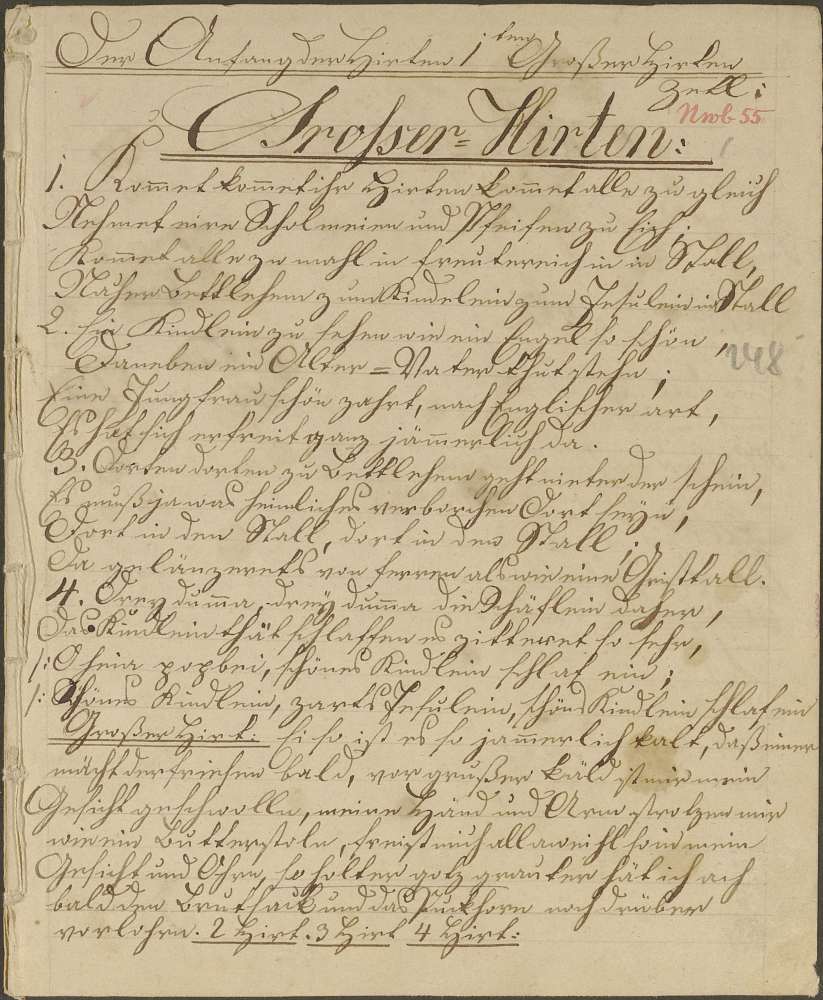 Der Anfang der Hirten 1ten Großer Hirten
Zell:
Nwb 55
Grosser=Hirten:
1. Kom̄et kom̄et ihr Hirten kom̄et alle zu gleich
Nehmet eire Scholmeien und Pfeifen zu Eich;
Kom̄et alle zu mahl in freutereich in in Stall,
Naher Bettlehem zum Kindelein zum Jesulein in Stall
2. Ein Kindlein zu sehen wie ein Engel so schön,
248
Daneben ein Alter=Vater thut stehn;
Eine Jungfrau schön zahrt, nach Englischer art,
Es hat sich erfreit ganz jäm̄erlich da.
3. Dorten dorten zu Bettlehem geht nieter der schein,
Es muß ja was heimliches verborchen Dort seyn,
Dort in den Stall, dort in den Stall;
Da gelänzerets von ferren als wie eine Geistkall.
4. Drey dum̄a, drey dum̄a die Schäflein daher,
Das Kindlein thät schlaffen es zitteret so sehr,
/: O heia popbei, schönes Kindlein schlaf ein;
/: Schönes Kindlein, zartes Jesulein, schöns Kindlein schlaf ein
Großer Hirt: Ei so ist es so jam̄erlich kalt, daß einer
mächt derfriehsen bald, vor grußer Käld ist mir mein
Gesicht geschwolln, meine Händ und Arm strotzen mir
wie ein Butterstoln, freist mich all aweihl so in mein
Gesicht und Ohrn, so holter gotz grauter hät ich ach
bald den Brutsack und das Puckhorn noch drüber
verlohrn. 2 Hirt. 3 Hirt 4 Hirt: